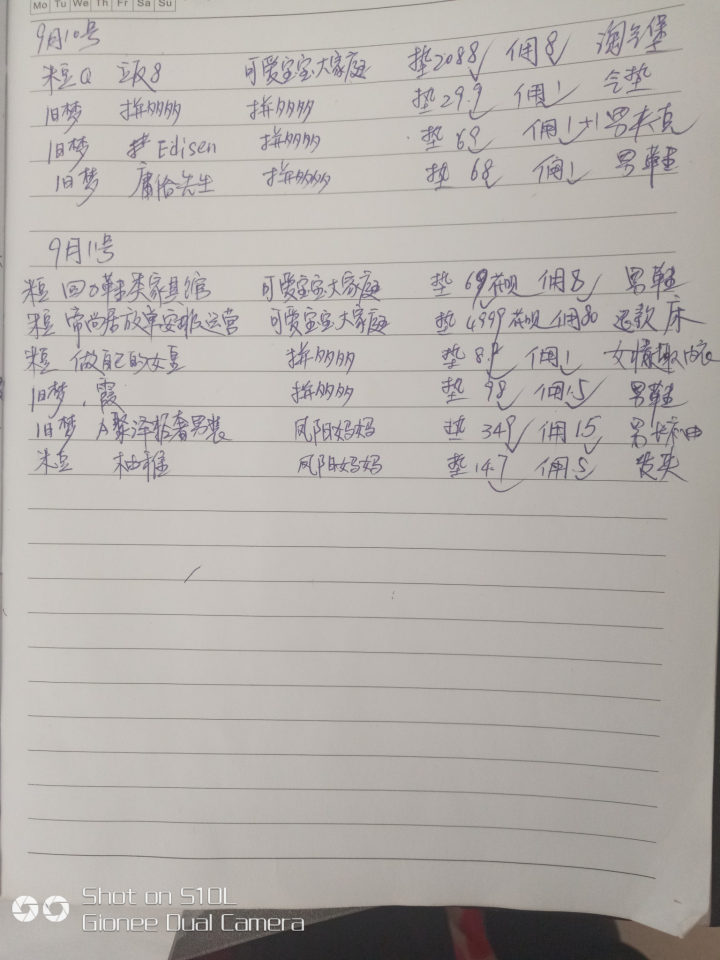 Mo Tu We Th Fr Sa Su
9月10号
米豆Q 立反8 可爱宝宝大家庭 垫2088 佣8 淘气堡
旧梦 拼多多 拼多多 垫29.9 佣1 气垫
旧梦 Edisen 拼多多 垫69 佣1+1 男夹克
旧梦 庸俗先生 拼多多 垫68 佣1 男鞋
9月11号
米豆 回力鞋类家具馆 可爱宝宝大家庭 垫69花呗 佣8 男鞋
米豆 帝尚居放单安排运营 可爱宝宝大家庭 垫4999花呗 佣80 退款 床
米豆 做自己的女皇 拼多多 垫8.9 佣1 女情趣内衣
旧梦 . 霞 拼多多 垫98 佣1.5 男鞋
旧梦 A聚泽轻奢男装 凤阳妈妈 垫349 佣15 男
米豆 柚稚 凤阳妈妈 垫14.7 佣5 发夹
Shot on S10L
Gionee Dual Camera